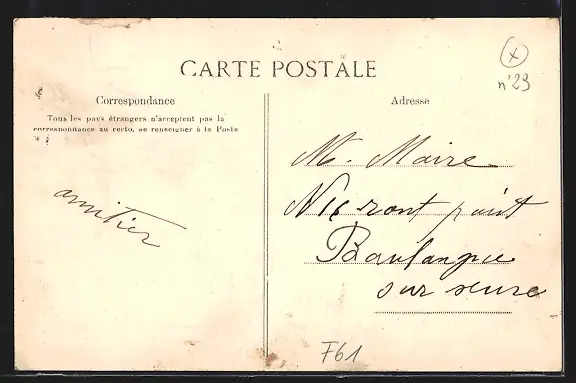 CARTE POSTALE
n°29
Correspondance
Tous les pays étrangers n'acceptent pas la
correspondance au recto, se renseigner à la Poste
amitier
Adresse
M. Maire
point
Boulangue
sur seure
F61